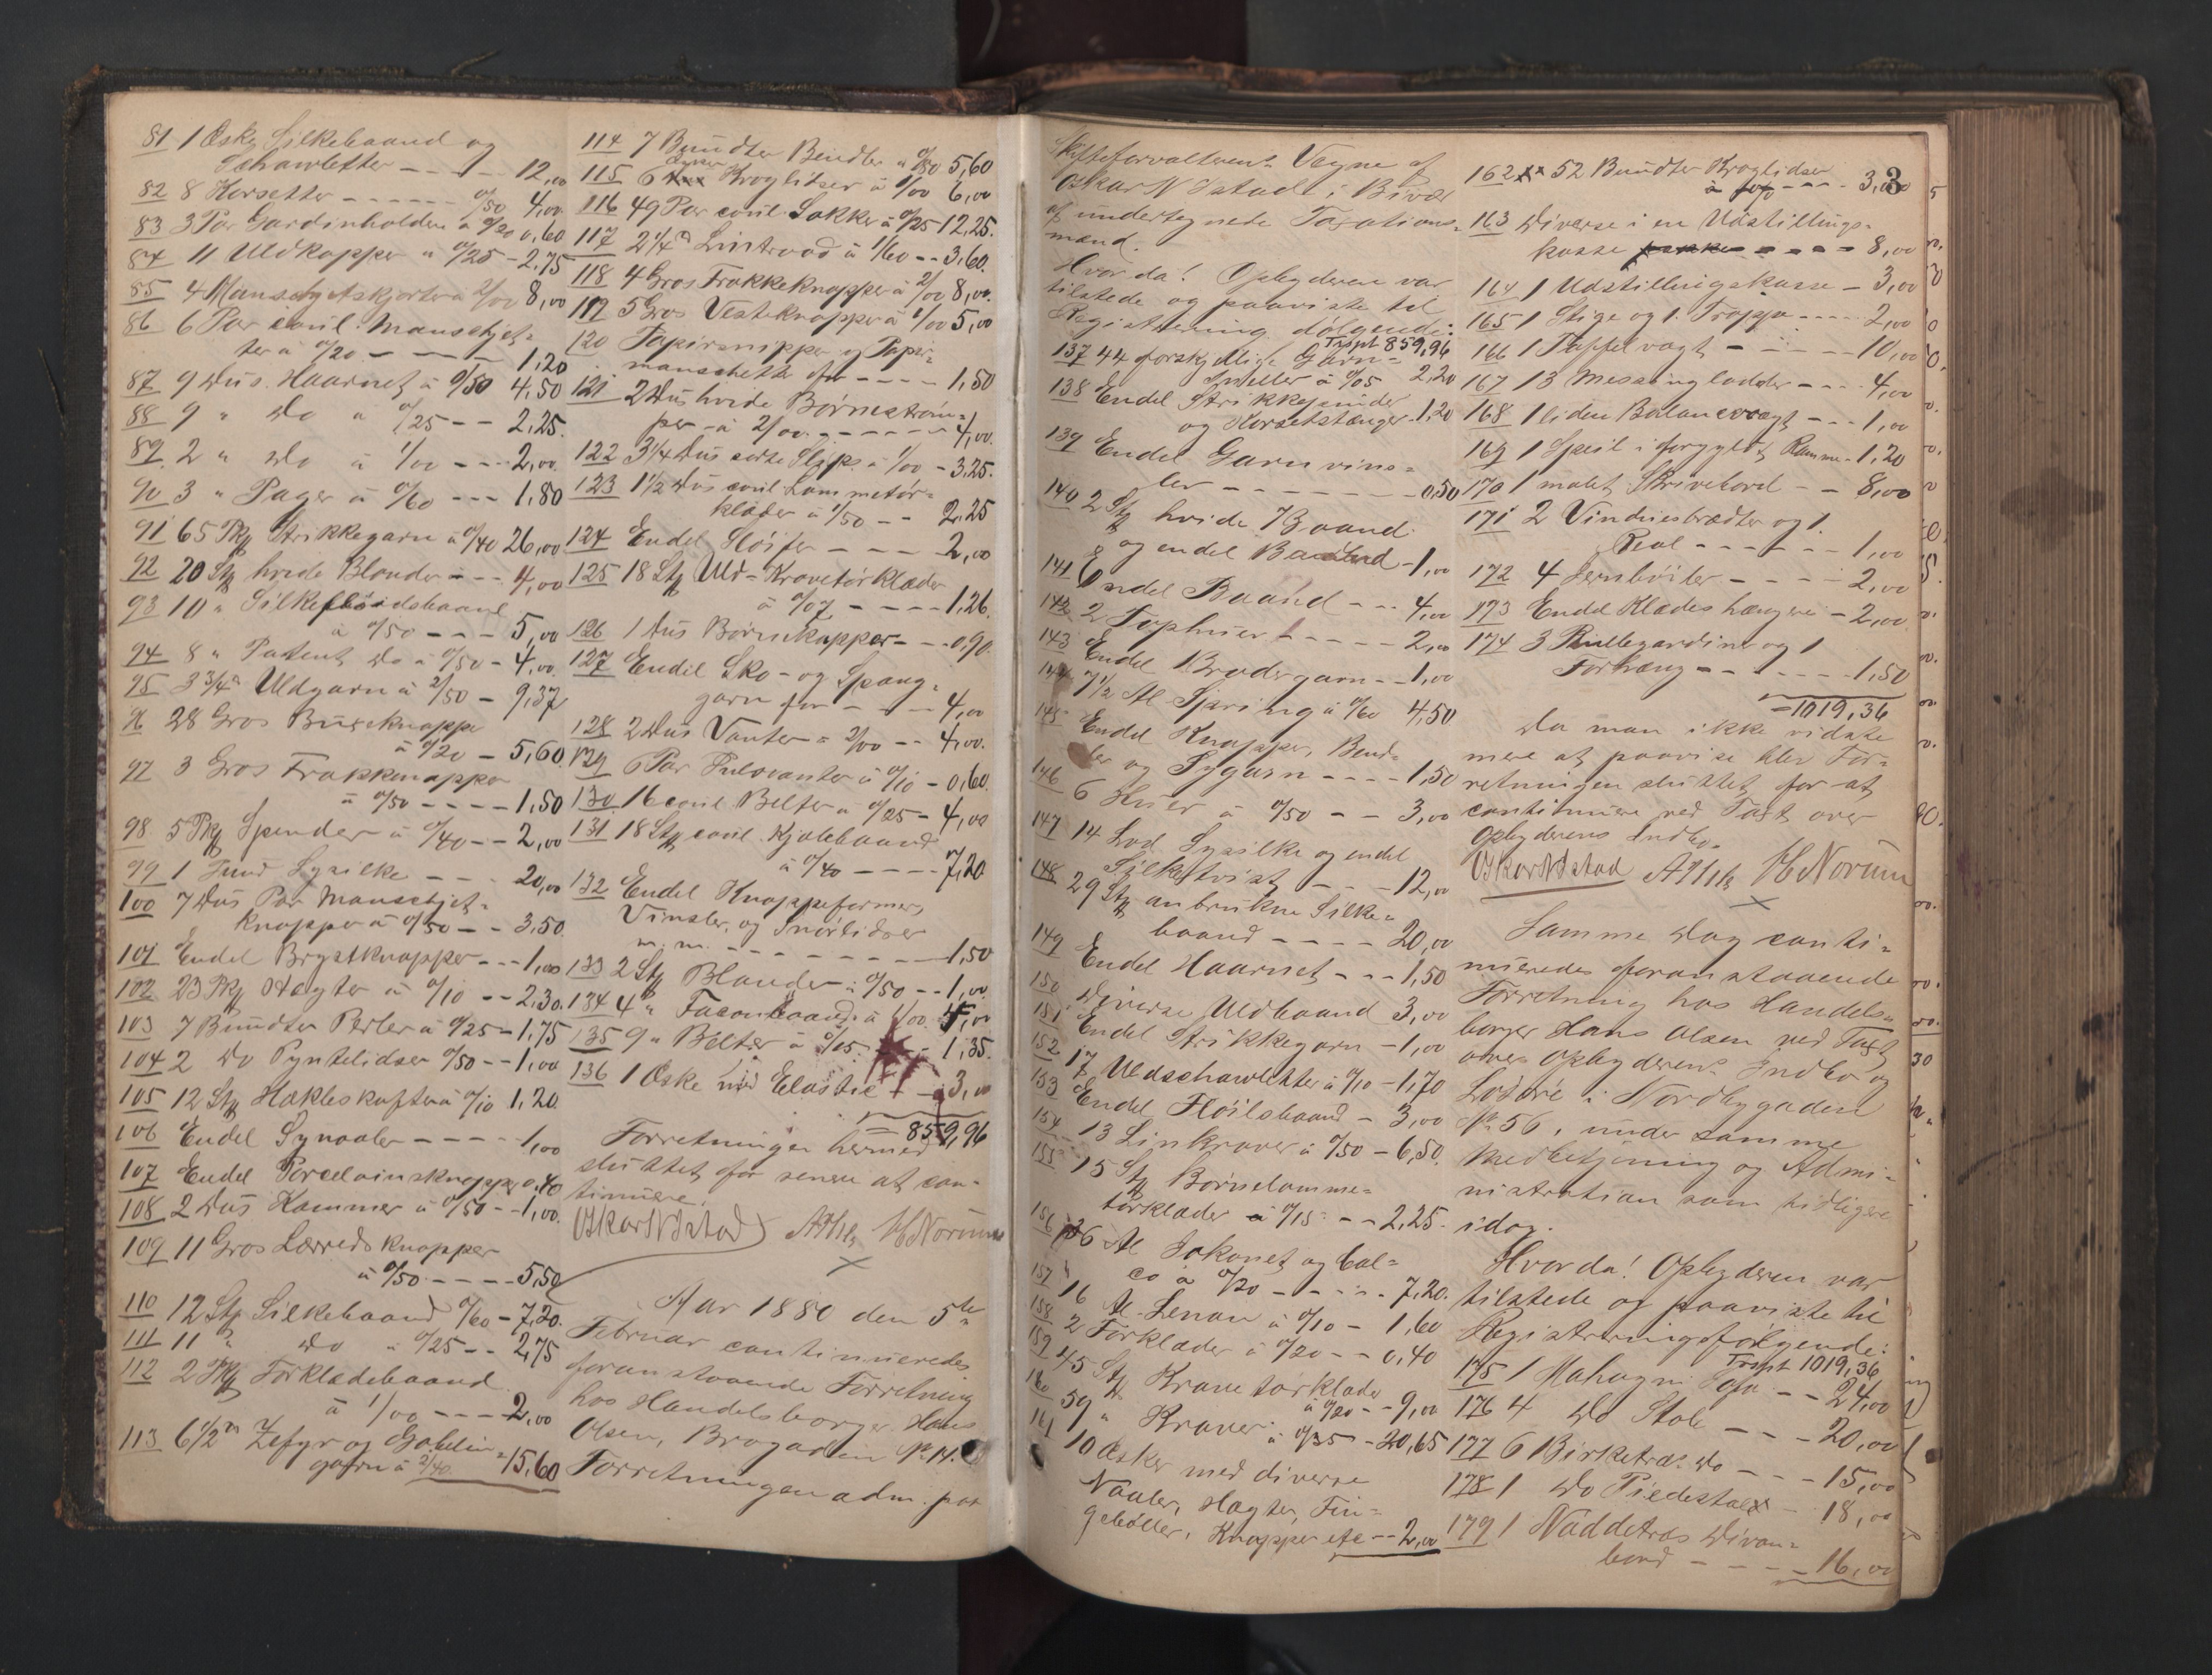 81 1 Æske Silkebaand og
Schawletter - - - 12,00
82 8 Korsetter - - - - - 0/50 4,00
83 3 Par Gardinholdere à 0/20 0,60
84 11 Uldkapper à 0/25 - 2,75
85 4 Manschetskjorter à 2/00 8,00
86 6 Par coul. Manschjet=
ter à 0/20 - - - - 1,20
87 9 Dus. Haarnet à 0/50 4,50
88 9 " Do à 0/25 - - 2,25.
89 2 " Do à 1/00 - - - 2,00.
90 3 " Pager à 0/60 - - - 1,80
91 65 Pk Strikkegarn à 0/40 26,00
92 20 Stk hvide Blonder - - - 4,00
93 10 " Silkefløidsbaand
à 0/50 - - - 5,00
94 8 " Patent Do à 0/50 - 4,00
95 3 3/4 Uldgarn à 2/50 - 9,37
96 28 Gros Buxeknapper
à 0/20 - 5,60.
97 3 Gros Frakknapper
à 0/50 - - - - 1,50
98 5 Pk Spender à 0/40 - - 2,00
99 1 Pund Sysilke - - - 20,00
100 7 Dus Par Manschjet=
knapper à 0/50 - - 3,50
101 Endel Brystknapper - - - 1,00
102 23 Pk Hægter à 0/10 - - 2,30.
103 7 Bundter Perler à 0/25 - 1,75
104 2 Do Pyntelidser 0/50 - - 1,00
105 12 Stk Hækleskafter à 0/10 1,20.
106 Endel Synaaler - - - - 1,00
107 Endel Porcelainsknapper 0,40
108 2 Dus Kammer à 0/50 - - 1,00.
109 11 Gros Lærredsknapper
à 0/50 - - - - 5,50
110 12 Stk Silkebaand 0/60 - 7,20.
111 11 " Do " 0/25 - - 2,75
112 2 Pk Forklædebaand
à 1/00 - - - 2,00
113 6 1/2 Zefyr og Gobelin=
garn à 2/40. 15,60
114 7 Bundter Bendler à 0/80 5,60
115 6 Kroglidser à 1/00 6,00
116 49 Par coul. Sokker à 0/25 12,25.
117 2 1/4 Lintraad à 1/60 - - 3,60.
118 4 Gros Frakkeknapper à 2/00 8,00.
119 5 Gros Vesteknapper à 1/00 5,00
120 Papirsnipper og Papir=
manschetter for - - - - 1,50
121 2 Dus hvide Børnestrøm=
per à 2/00. - - - - - 4,00.
122 3 1/4 Dus sorte Slips à 1/00 - 3,25.
123 1 1/2 Dus coul. Lommetør=
klæder à 1/50 - - 2,25
124 Endel Sløifer - - - - 2,00
125 18 Stk Uld= Kravetørklæder
à 0/07 - - - - 1,26.
126 1 Dus Børnekapper - - - 0,90.
127 Endel Sko- og Spæng=
garn for - - - - 4,00
128 2 Dus Vanter = 2/00 - - 4,00.
129 6 Par Pulsvanter à 0/10 - 0,60.
130 16 coul. Belter à 0/25 - 4,00
131 18 Stk coul. Kjolebaand
à 0/40 - - - - 7,20
132 Endel Knappeformer,
Vinsler, og Snørlidser
m. m. - - - - - - - - 1,50
133 2 Stk Blonder à 0/50 - - 1,00.
134 4 " Faconbaand à 1/00. 4,00
135 9 " Belter à 0/15. - 1,35.
136 1 Æske med Elastic - - 3,00
= 859,96
Forretningen hermed
sluttet for senere at con=
tinuere.
OskarNIstad AHsle HNorum
Aar 1880 den 5te
Februar continueredes
foranstaaende Forretning
hos Handelsborger Hans
Olsen, Brogaden No 14.
Forretningen adm. paa
3
Skifteforvalterens Vegne af
Oskar N Istad i Bivær
af undertegnede Taxations=
mænd.
Hvorda! Opbyderen var
tilstede og paaviste til
Registrering følgende:
Trspt 859,96
137 44 forskjellige Garn=
sneller à 0/05 2,20
138 Endel Strikkepinder
og Korsetstænger. 1,20
139 Endel Garnvins=
ler - - - - - - - 0,50
140 2 Stk hvide Baand.
og endel Baand - 1,00
141 Endel Baand - - - 4,00
142 2 Tophuer - - - - - 2,00
143 Endel Brodergarn - - 1,00
144 7 1/2 Al Sjæring à 0/60 4,50
145 Endel Knapper, Bend=
ler og Sygarn - - - - 1,50
146 6 Huer à 0/50 - - 3,00
147 14 Lod Sysilke og endel
Silketvist - - - 12,00
148 29 Stk anbrukne Silke=
baand - - - - 20,00
149 Endel Haarnet - - - 1,50
150 Diverse Uldbaand 3,00
151 Endel Strikkegarn - 1,00
152 17 Uldschawletter à 0/10 - 1,70
153 Endel Fløilsbaand - 3,00
154 13 Linkraver à 0/50 - 6,50.
155 15 Stk Børnelomme=
tørklæder à 0/15 - - 2,25.
156 36 Al Jakonet og Cal=
co à 0/20 - - - - 7,20.
157 16 Al. Lenon à 0/10 - 1,60
158 2 Forklæder à 0/20 - - 0,40
159 45 Stk Kravetørklæder
à 0/20 - - 9,00
160 59 " Kraver à 0/35 - 20,65
161 10 Æsker med diverse
Naaler, Hægter, Fin=
gebøller, Knapper etc - - 2,00
162 52 Bundter Kroglidser
- - - 3,00
163 Diverse i en Udstillings=
kasse - - - - 8,00
164 1 Udstillingskasse - 3,00
165 1 Stige og 1. Trappe - - - - 2,00
166 1 Taffelvægt - - - - - 10,00
167 13 Messinglodder - - - 4,00
168 1 liden Balancevægt - - - 1,00
169 1 Speil i forgyldt Ramme - 1,20
170 1 malet Skrivebord - - 8,00
171 2 Vinduesbrædter og 1.
Reol - - - - - - 1,00
172 4 Jernbøiler - - - - 2,00
173 Endel Klædeshængere - 2,00
174 3 Rullegardiner og 1
Forhæng - - - - - 1,50
= 1019,36
Da man ikke vidste
mere at paavise blev For=
retningen sluttet for at
continuere ved Taxt over
Opbyderens Indbo.
OskarNIstad AHsle HNorum
Samme Dag conti=
nueredes foranstaaende
Forretning hos Handels=
borger Hans Olsen ved Taxt
over Opbyderens Indbo og
Løsøre i Nordbygaden
No 56, under samme
Medbetjening og Admi=
nistration som tidligere
idag.
Hvorda! Opbyderen var
tilstede og paaviste til
Registrering følgende:
Trspt 1019,36
175 1 Mahogni Sofa - - 24,00
176 4 Do Stole - - - 20,00
177 6 Birketræs Do - - - 15,00
178 1 Do Piedestal - 18,00
179 1 Nøddetræs Divan=
bord - - - - 16,00